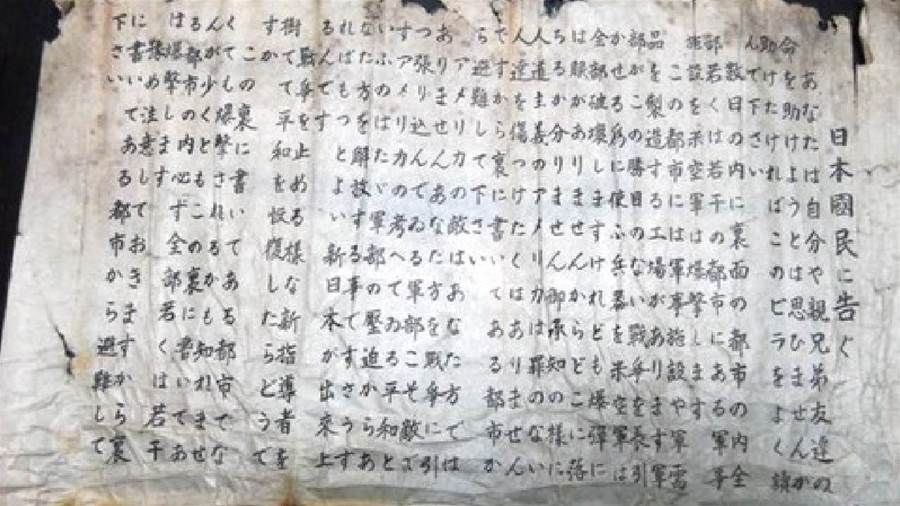 日本國民に告ぐ
あなたは自分や親兄弟友達の
命を助けようとは思ひませんか
助けたければこのビラをよく讀
んで下さい
數日の内に裏面の都市の内全
部若くは若干の都市にある軍事
施設を米空軍は爆撃します
この都市には軍事施設や軍需
品を製造する工場があります軍
部がこの勝目のない戰爭を長引
かせる爲に使ふ兵器を米空軍は
全部破壊しますけれども爆彈に
は眼がありませんからどこに落
ちるか分りません御承知の様に
人道主義のアメリカは罪のない
人達を傷つけたくはありません
ですから裏に書いてある都市か
ら避難して下さい
アメリカの敵はあなた方では
ありませんあなた方を戰爭に引
つ張り込んでゐる軍部こそ敵で
すアメリカの考へてゐる平和と
いふのはたゞ軍部の壓迫からあ
なた方を解放する事ですさうす
ればもつとよい新日本が出來上
るんです
戰爭を止める様な新指導者を
樹てて平和を恢復したらどうで
すか
この裏に書いてある都市でな
くても爆撃されるかも知れませ
んが少くともこの裏に書いてあ
る都市の内必ず全部若くは若干
は爆撃します
豫め注意しておきますから裏
に書いてある都市から避難して
下さい